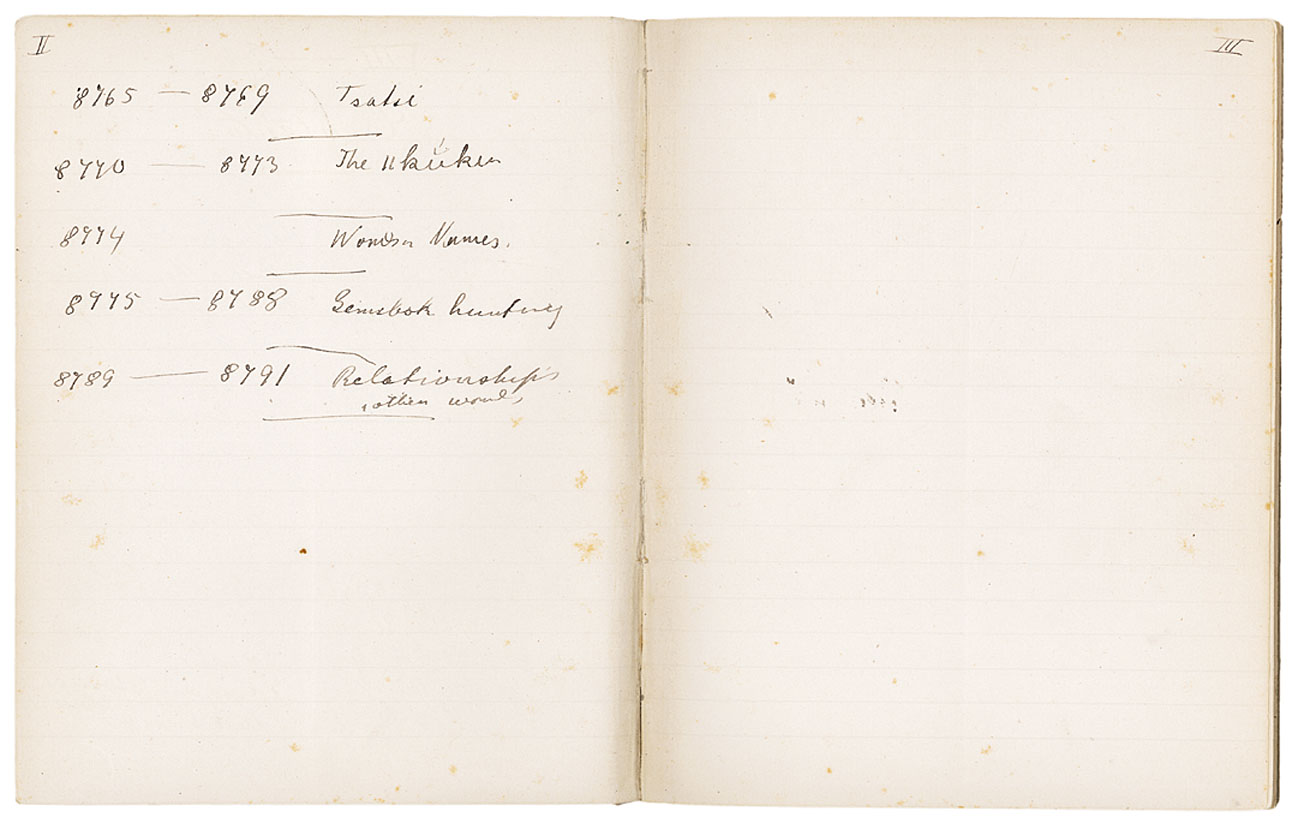 II
8765 — 8769 Tsatsi
8770 — 8773 The ǁkúken
8774 Women Names.
8775 — 8788 Gemsbok hunting
8789 — 8791 Relationships
, other words
III